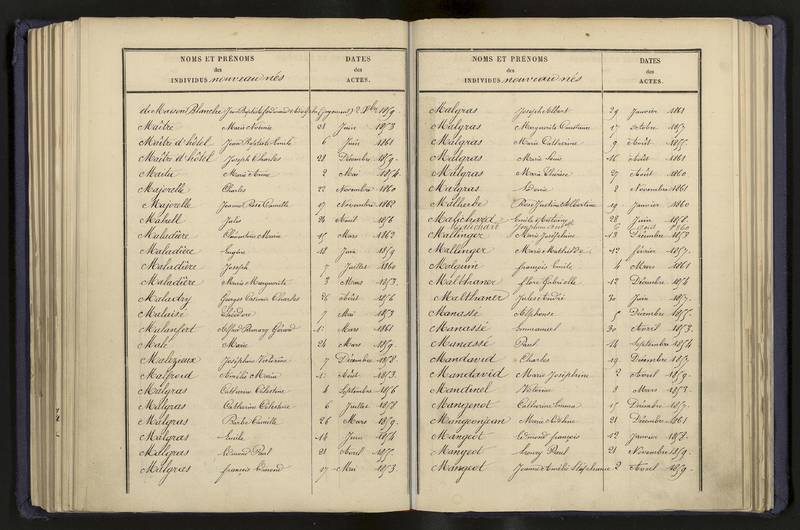 NOMS ET PRÉNOMS
des
INDIVIDUS nouveau nés
DATES
des
ACTES.
de Maison Blanche 1859
Maître Marie Noémie 21 Juin 1853
Maître d'hôtel Jean Baptiste Emile 6 Juin 1861
Maître d'hôtel Joseph Charles 28 Décembre 1859
Marie Anne 2 Mai 1856
Majorelle Charles 22 Novembre 1860
Majorelle Jeanne Rose Camille 17 Novembre 1862
Jules 24 Août 1856
Maladière Clémentine Marie 15 Mars 1862
Maladière Eugène 18 Juin 1859
Maladière Joseph 7 Juillet 1860
Maladière Marie Marguerite 3 Mars 1853
Maladry Georges Casimir Charles 26 Août 1856
Malaisé Théodore 7 Mai 1853
Malanfort Alfred Gérard 1 Mars 1861
Malé Marie 24 Mars 1859
Malézieux Joséphine Victorine 7 Décembre 1858
Malfroid 1 Août 1853
Malgras Catherine Célestine 4 Septembre 1856
Malgras Catherine Célestine 6 Juillet 1858
Malgras Barbe Camille 26 Mars 1859
Malgras Emile 14 Juin 1856
Malgras Edmond Paul 21 Avril 1857
Malgras François Edmond 17 Mai 1853
NOMS ET PRÉNOMS
des
INDIVIDUS nouveau nés
DATES
des
ACTES.
Malgras Joseph Albert 29 Janvier 1861
Malgras Marguerite Constance 17 Octobre 1857
Malgras Marie Catherine 9 Août 1855
Malgras Marie 16 Août 1861
Malgras Marie Thérèse 27 Août 1860
Malgras 8 Novembre 1861
Malherbe Rose Justine Albertine 19 Janvier 1860
Malichard Emile Antoine 28 Juin 1858
Malichard Joséphine 1860
Mallinger Marie Joséphine 13 Décembre 1853
Mallinger Marie Mathilde 12 février 1857
Malguin françois Emile 4 Mars 1861
Malthaner flore Gabrielle 12 Décembre 1856
Malthaner Jules André 30 Juin 1857
Manassé Alphonse 5 Décembre 1855
Manassé Emmanuel 30 Avril 1853
Manassé Paul 14 Septembre 1856
Mandavid Charles 19 Décembre 1857
Mandavid Marie Joséphine 2 Avril 1859
Mandinel Victorine 8 Mars 1853
Mangenot Catherine Emma 15 Décembre 1857
Mangeonjean Marie Adeline 21 Décembre 1861
Mangeot Edmond françois 12 Janvier 1858
Mangeot Henry Paul 21 Novembre 1859
Mangeot Jeanne Amélie Stéphanie 2 Avril 1859